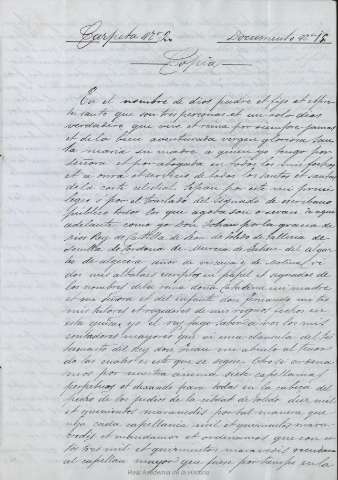 Carpeta nº 2. Documento nº 16
Copia
En el nombre de dios padre et fijo et espiritu
santo que son tres personas et un solo dios
verdadero que vive et reina por siempre jamas
et de la bien aventurada virgen gloriosa san
ta maria su madre a quien yo tengo por
señora et por abogada en todos los mis fechos
et a onra et servicio de todos los santos et santas
de la corte celestial. Sepan por este mi previ
legio o por el traslado del signado de escribano
publico todos los que agora son o seran de aqui
adelante como yo Don Johan por la gracia de
dios Rey de Castilla de Leon de Toledo de Gallicia de
Sevilla de Cordova de Murcia de Jahen del algar
be de algecira señor de vizcaya e de molina,
dos mis albalaes escriptos en papel et signados de
los nombres de la reina doña Catalina mi madre
et mi señora et del infante don fernando mi tio
mis tutores et regidores de mis regnos fechos en
esta guisa: yo el rey fago saber a vos los mis
contadores mayores que en una clausula del tes
tamento del Rey don Juan mi abuelo
la cual es esta que se sigue. Otrosi ordena
mos por nuestra anima siete capellanias
perpetuas et
de los judios de la cibdat de toledo diez mil
et quinientos maravedis por tal manera que
aya cada capellania mil et quinientos mara
vedis et mandamos et ordenamos que con
los tres mil et quinientos maravedis
al capellan mayor que fuere por tiempo en la
Real Academia de la Historia